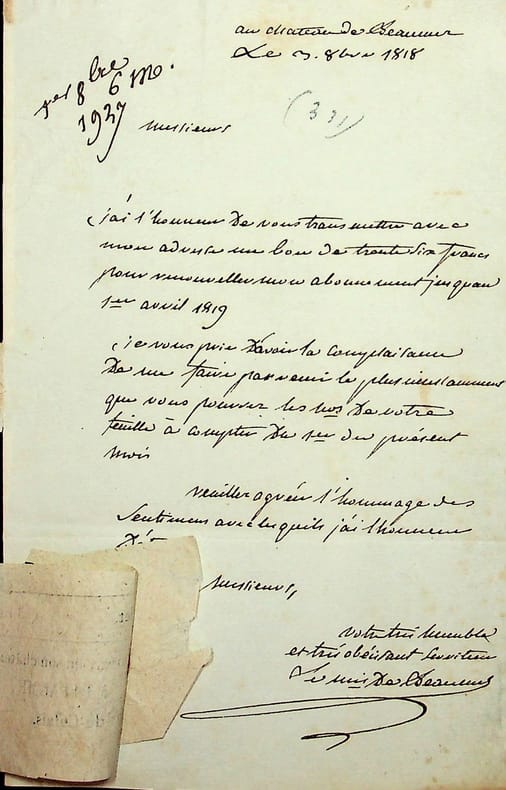 au chateau de Beaumez
Le 3. 8bre 1818
per 8bre 6 mo.
1937
(331)
Messieurs
j'ai l'honneur De vous transmettre avec
mon adresse un bon de trente six francs
pour renouveller mon abonnement jusquau
1er avril 1819
je vous prie D'avoir la complaisance
De me faire parvenir le plus incessamment
que vous pouvez les nos De votre
feuille à compter Du 1er du présent
mois
veuillez agréer l'hommage des
Sentimens avec lesquels j'ai l'honneur
D'ê
Messieurs,
votre très humble
et très obéissant serviteur
Le mis De